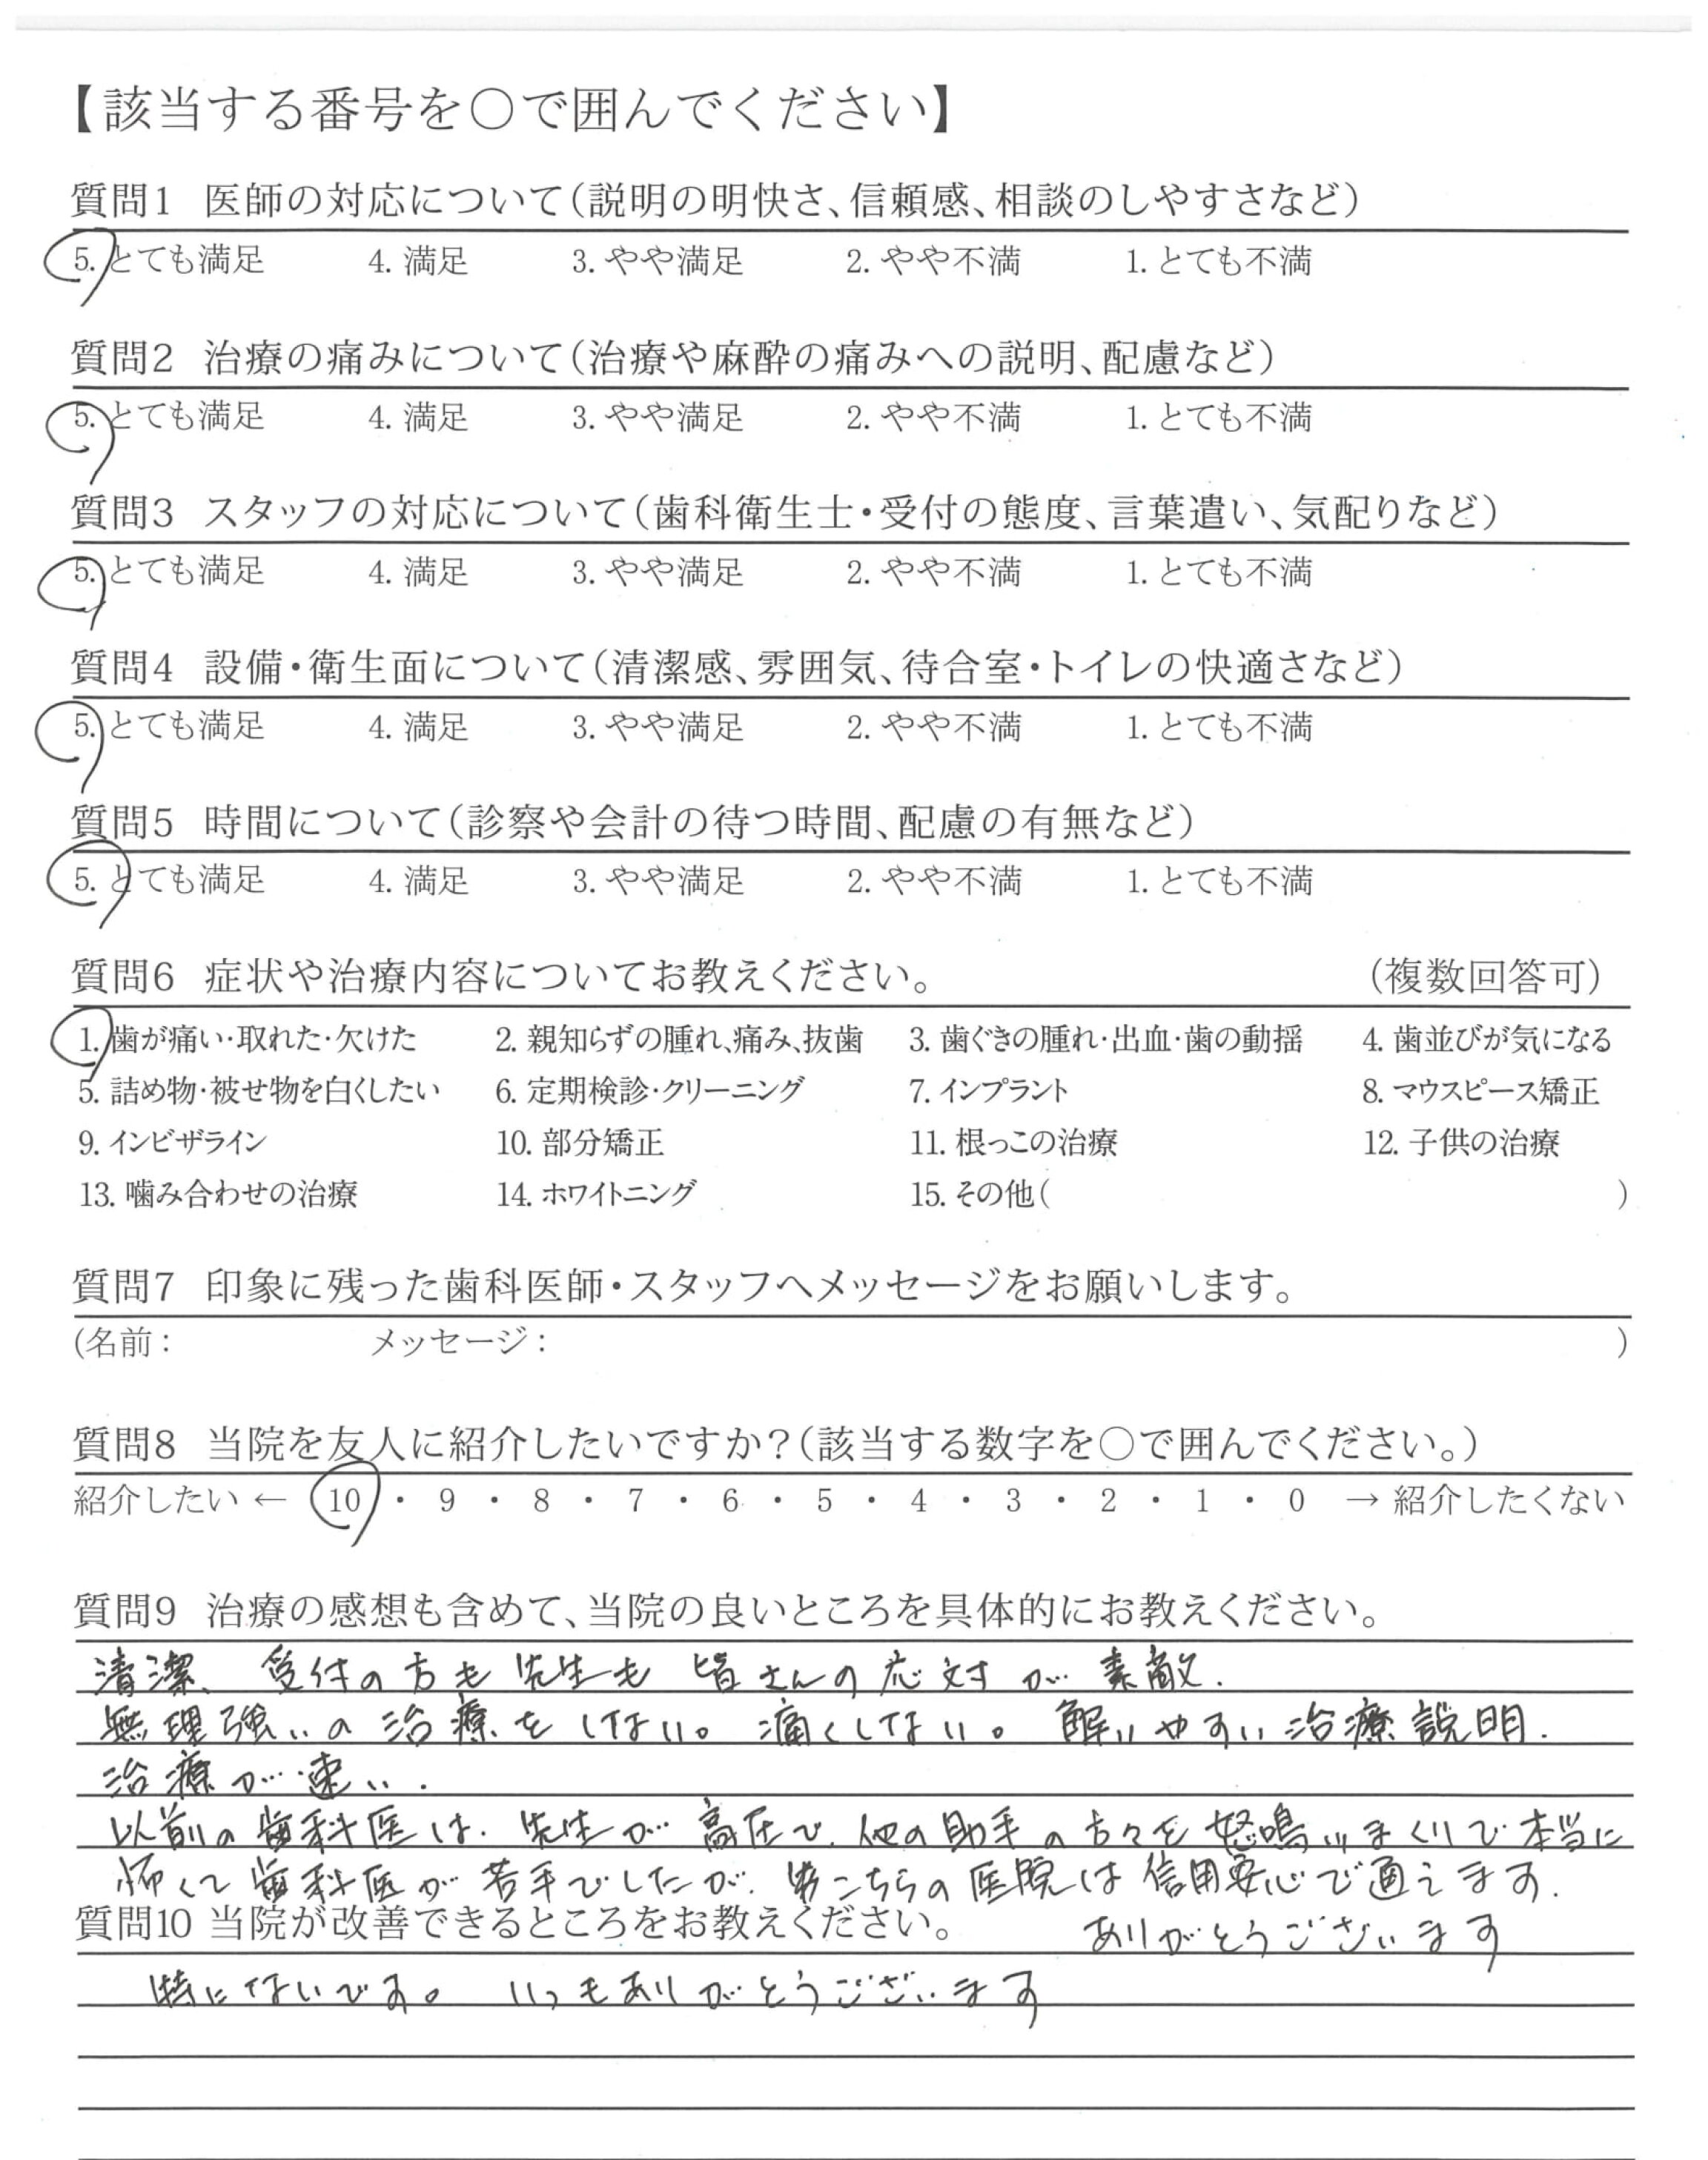 【該当する番号を○で囲んでください】
質問1 医師の対応について(説明の明快さ、信頼感、相談のしやすさなど)
5. とても満足 4. 満足 3. やや満足 2. やや不満 1. とても不満
質問2 治療の痛みについて(治療や麻酔の痛みへの説明、配慮など)
5. とても満足 4. 満足 3. やや満足 2. やや不満 1. とても不満
質問3 スタッフの対応について(歯科衛生士・受付の態度、言葉遣い、気配りなど)
5. とても満足 4. 満足 3. やや満足 2. やや不満 1. とても不満
質問4 設備・衛生面について(清潔感、雰囲気、待合室・トイレの快適さなど)
5. とても満足 4. 満足 3. やや満足 2. やや不満 1. とても不満
質問5 時間について(診察や会計の待つ時間、配慮の有無など)
5. とても満足 4. 満足 3. やや満足 2. やや不満 1. とても不満
質問6 症状や治療内容についてお教えください。 (複数回答可)
1. 歯が痛い・取れた・欠けた 2. 親知らずの腫れ、痛み、抜歯 3. 歯ぐきの腫れ・出血・歯の動揺 4. 歯並びが気になる
5. 詰め物・被せ物を白くしたい 6. 定期検診・クリーニング 7. インプラント 8. マウスピース矯正
9. インビザライン 10. 部分矯正 11. 根っこの治療 12. 子供の治療
13. 噛み合わせの治療 14. ホワイトニング 15. その他( )
質問7 印象に残った歯科医師・スタッフへメッセージをお願いします。
(名前: メッセージ: )
質問8 当院を友人に紹介したいですか?(該当する数字を○で囲んでください。)
紹介したい ← 10 ・ 9 ・ 8 ・ 7 ・ 6 ・ 5 ・ 4 ・ 3 ・ 2 ・ 1 ・ 0 → 紹介したくない
質問9 治療の感想も含めて、当院の良いところを具体的にお教えください。
清潔、受付の方も先生も皆さんの応対が素敵.
無理強いの治療をしない。痛くしない。解りやすい治療説明.
治療が速い.
以前の歯科医は、先生が高圧で、他の助手の方々を怒鳴りまくりで本当に
怖くて歯科医が苦手でしたが、こちらの医院は信用安心で通えます.
質問10 当院が改善できるところをお教えください。 ありがとうございます
特にないです。いつもありがとうございます